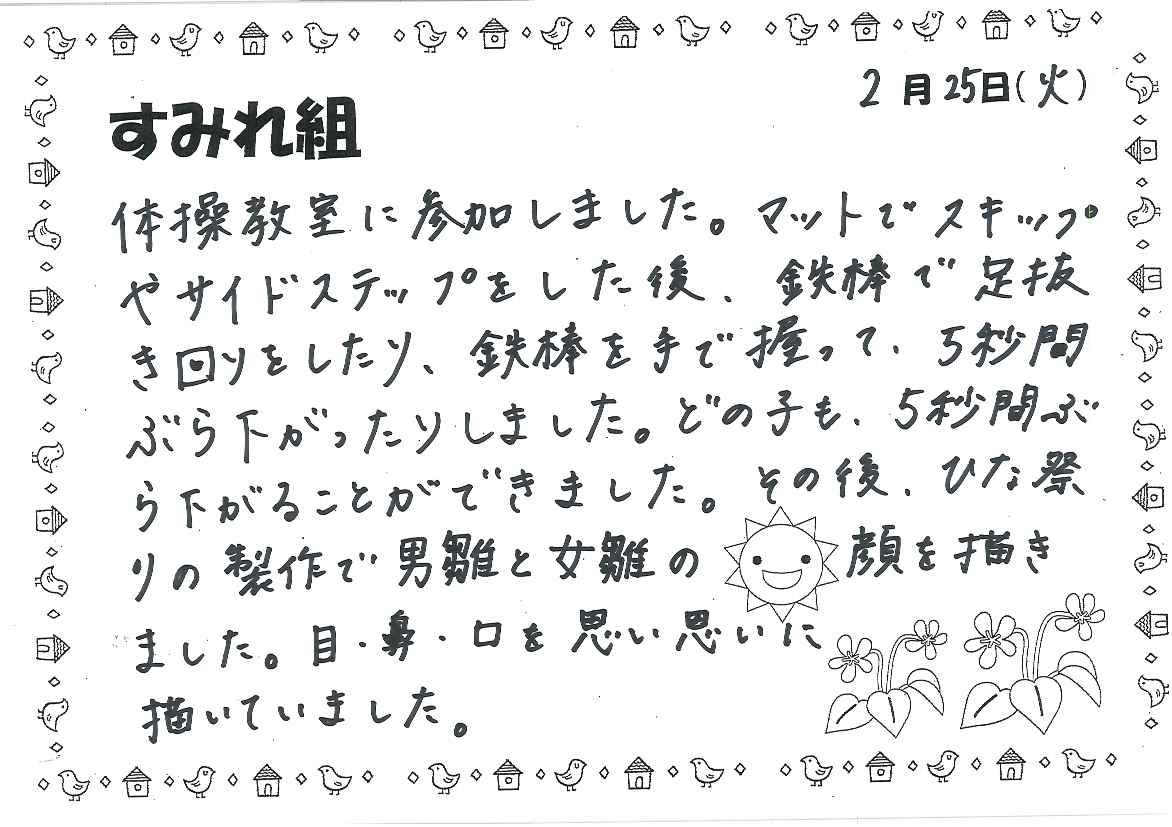 2月25日(火)
すみれ組
体操教室に参加しました。マットでスキップ
やサイドステップをした後、鉄棒で足抜
き回りをしたり、鉄棒を手で握って、5秒間
ぶら下がったりしました。どの子も、5秒間ぶ
ら下がることができました。その後、ひな祭
りの製作で男雛と女雛の顔を描き
ました。目・鼻・口を思い思いに
描いていました。